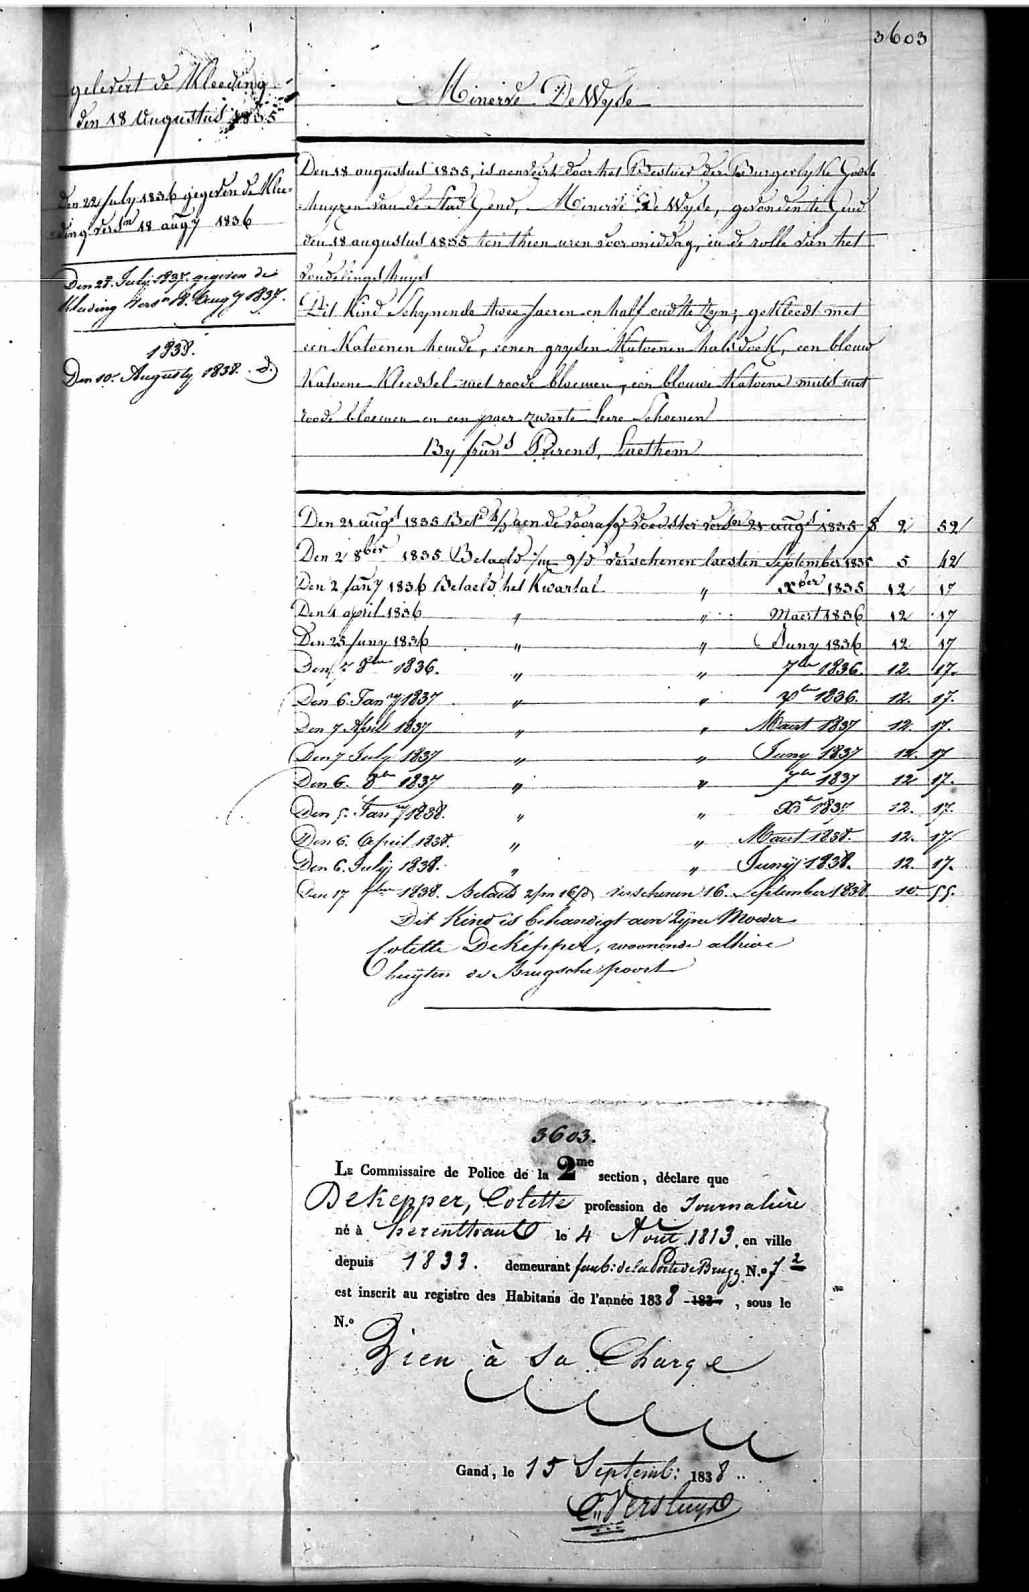 3603
gelevert de Kleeding
den 18 augustus 1835
den 22 July 1836 gegeven de Klee-
ding vers.en 18 augy 1836
Den 28. July 1837. gegeven de
Kleeding vers.n 18. Augy 1837.
1938.
Den 10. Augusty 1838.
Minerve De Wyse
Den 18 augustus 1835, is aenveird door het Bestier der Burgerlyke Gods-
huyzen van de Stad Gend, Minerve De Wyse, gevonden te Gend
den 18 augustus 1835 ten thien uren voor middag, in de rolle van het
vondelingshuys
Dit Kind Schynende twee Jaeren en half oud te Zyn; gekleedt met
een Katoenen hemde, eenen grysen Katoenen halsdoek, een blouw
Katoene Kleedsel met roode bloemen, een blouwe Katoene muts met
roode bloemen en een paer zwarte leere Schoenen
By frans Pierens, Laethem
Den 21 augs 1835 Bet.d aen de voorafg. voedster vers.en 21 augs 1835 f 2 52
Den 2 8ber 1835 Betaeld 1/m 9/d verschenen laesten September 1835 5 42
Den 2 Jany 1836 Betaeld het Kwartal " xber 1835 12 17
Den 4 april 1836 " " Maert 1836 12 17
Den 25 Juny 1836 " " Juny 1836 12 17
Den 7 8ber 1836. " " 7ber 1836. 12. 17.
Den 6. Jany 1837 " " xber 1836. 12. 17.
Den 7 April 1837 " " Maert 1837 12. 17.
Den 7 July 1837 " " Juny 1837 12. 17
Den 6. 8ber 1837 " " 7ber 1837 12 17.
Den 5. Jany 1838. " " Xber 1837 12. 17.
Den 6. April 1838. " " Maert 1838. 12. 17.
Den 6. Julij 1838. " " Junij 1838. 12. 17.
Den 17 7ber 1838. Betaeld 2/m 16/d verschenen 16. September 1838. 10 55.
Dit Kind is behandigt aen Zyne Moeder
Colette DeKepper, woonende alhier
buyten de Brugsche poort
3603.
LE Commissaire de Police de la 2me section, déclare que
DeKepper, Colette profession de Journalière
né à herenthaut le 4 Août 1813, en ville
depuis 1833. demeurant faub: de la Porte de Brugg N.o 7 2
est inscrit au registre des Habitans de l'année 1838 183 , sous le
N.o
Rien à Sa Charge
Gand, le 15 Septemb: 1838
Versluys